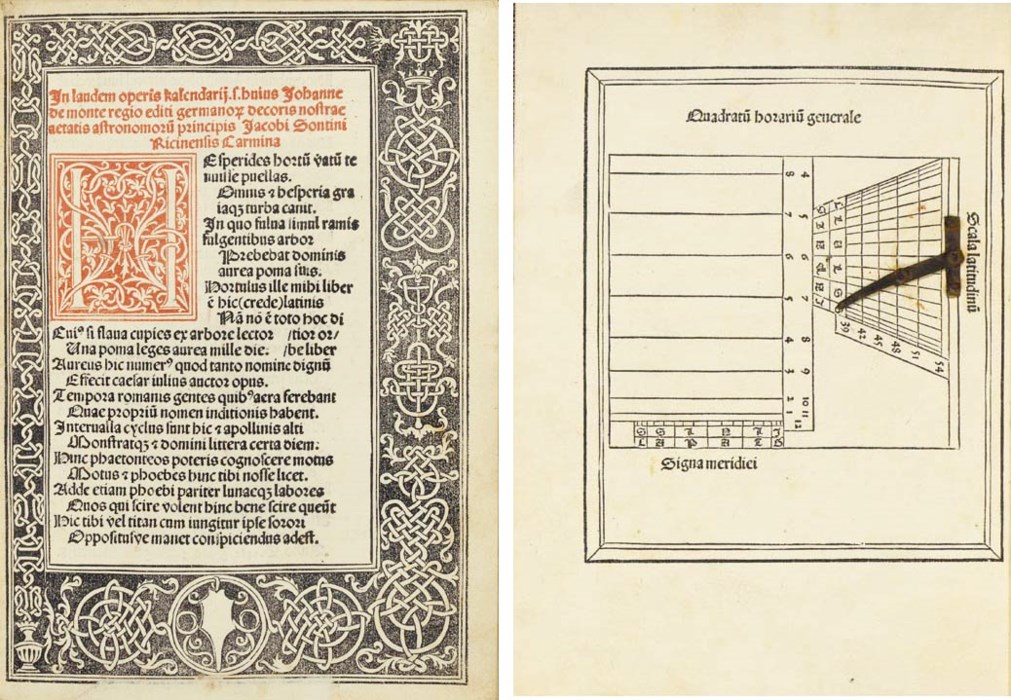 In laudem operis kalendarij.ſ.huius Johanne
de monte regio editi germanoꝝ decoris noſtrae
aetatis aſtronomorū principis Jacobi Sontini
Ricinenſis Carmina
HEſperides hortū vatū te
nuiſſe puellas.
Omnis ⁊ heſperia gra
iaqꝫ turba canit.
In quo fulua ſimul ramis
fulgentibus arbor
Prebebat dominis
aurea poma ſuis.
Hortulus ille mihi liber
ē hic(crede)latinus
Nā nō ē toto hoc di
Cuiꝰ ſi flaua cupies ex arbore lector /tior or/
Una poma leges aurea mille die. /be liber
Aureus hic numerꝰ quod tanto nomine dignū
Effecit caeſar iulius auctor opus.
Tempora romanis gentes quibꝰ aera ferebant
Quae propriū nomen inditionis habent.
Interualla cyclus ſunt hic ⁊ apollinis alti
Monſtratqꝫ ⁊ domini littera certa diem.
Hinc phaetonteos poteris cognoſcere motus
Motus ⁊ phoebes hinc tibi noſſe licet.
Adde etiam phoebi pariter lunaeqꝫ labores
Quos qui ſcire volent hinc bene ſcire queūt
Hic tibi vel titan cum iungitur ipſe ſorori
Oppoſituſve manet conſpiciendus adeſt.
Quadratū horariū generale
8 4
7 5
6 6
5 7
4 8
3 9
2 10
1 11
12
Scala latitudinū
39 42 45 48 51 54
Signa meridiei